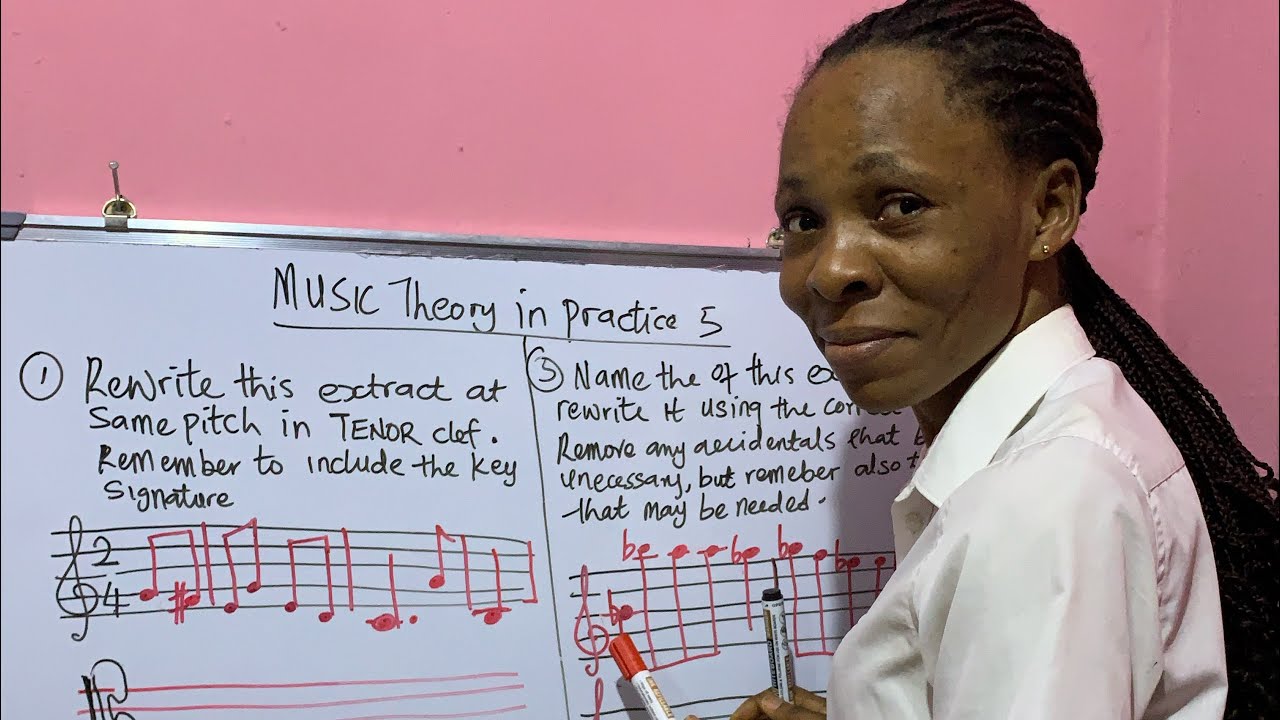 MUSIC Theory in practice 5
① Rewrite this extract at
Same pitch in TENOR clef.
Remember to include the key
Signature
2
4
③ Name the of this
rewrite it using the
Remove any accidentals that
unecessary, but remeber also
that may be needed.